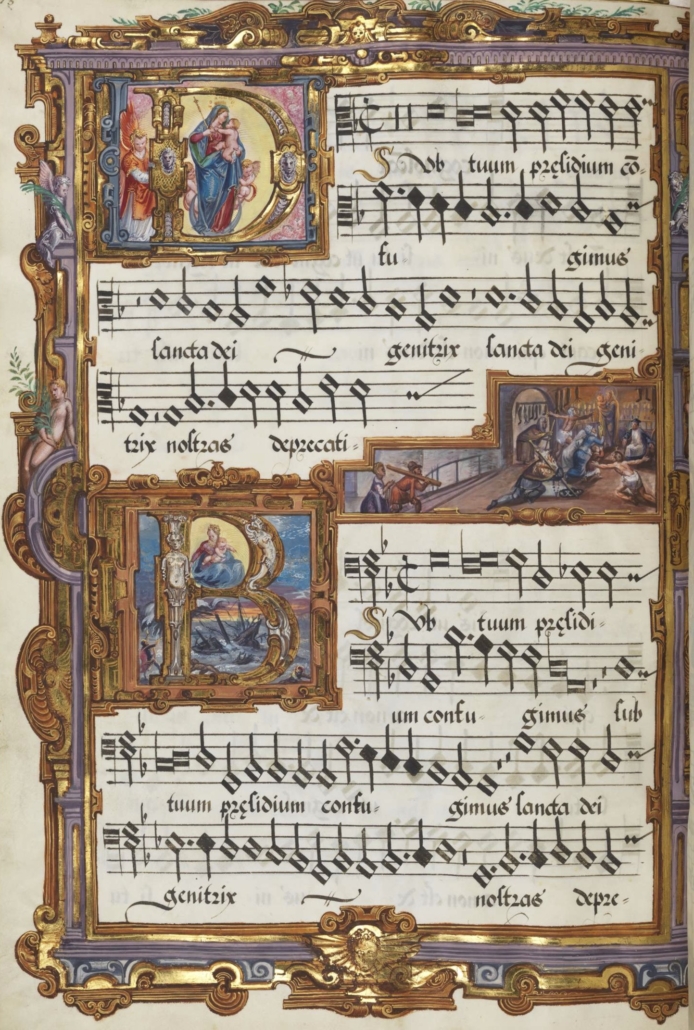 D
Svb tuum pręsidium cō-
fu gimus
sancta dei genitrix sancta dei geni
trix nostras deprecati-
B
Svb tuum pręsidi-
um confu- gimus sub
tuum pręsidium confu- gimus sancta dei
genitrix nostras depre-